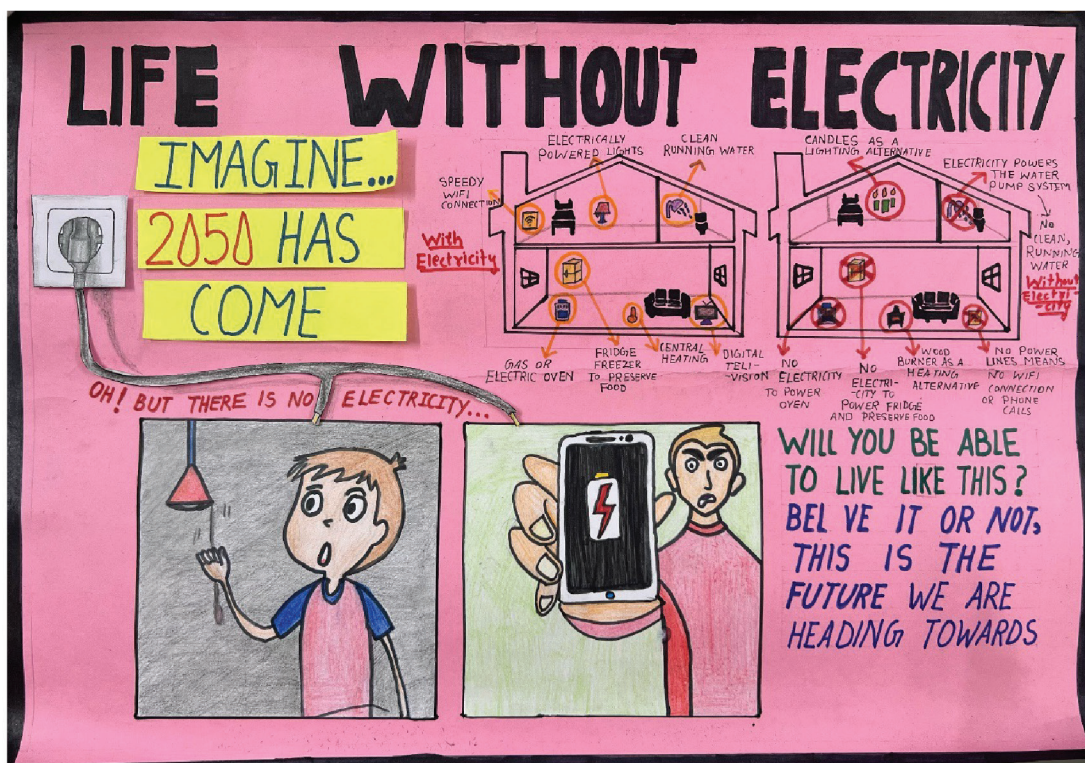 LIFE WITHOUT ELECTRICITY
IMAGINE...
2050 HAS
COME
With
Electricity
SPEEDY
WIFI
CONNECTION
ELECTRICALLY
POWERED LIGHTS
CLEAN
RUNNING WATER
GAS OR
ELECTRIC OVEN
FRIDGE
FREEZER
TO PRESERVE
FOOD
CENTRAL
HEATING
DIGITAL
TELI-
VISION
CANDLES AS A
LIGHTING ALTERNATIVE
ELECTRICITY POWERS
THE WATER
PUMP SYSTEM
NO
CLEAN,
RUNNING
WATER
Without
Electri-
city
NO
ELECTRICITY
TO POWER
OVEN
NO
ELECTRI-
CITY TO
POWER FRIDGE
AND PRESERVE FOOD
WOOD
BURNER AS A
HEATING
ALTERNATIVE
NO POWER
LINES MEANS
NO WIFI
CONNECTION
OR PHONE
CALLS
OH! BUT THERE IS NO ELECTRICITY...
WILL YOU BE ABLE
TO LIVE LIKE THIS?
BEL VE IT OR NOT,
THIS IS THE
FUTURE WE ARE
HEADING TOWARDS